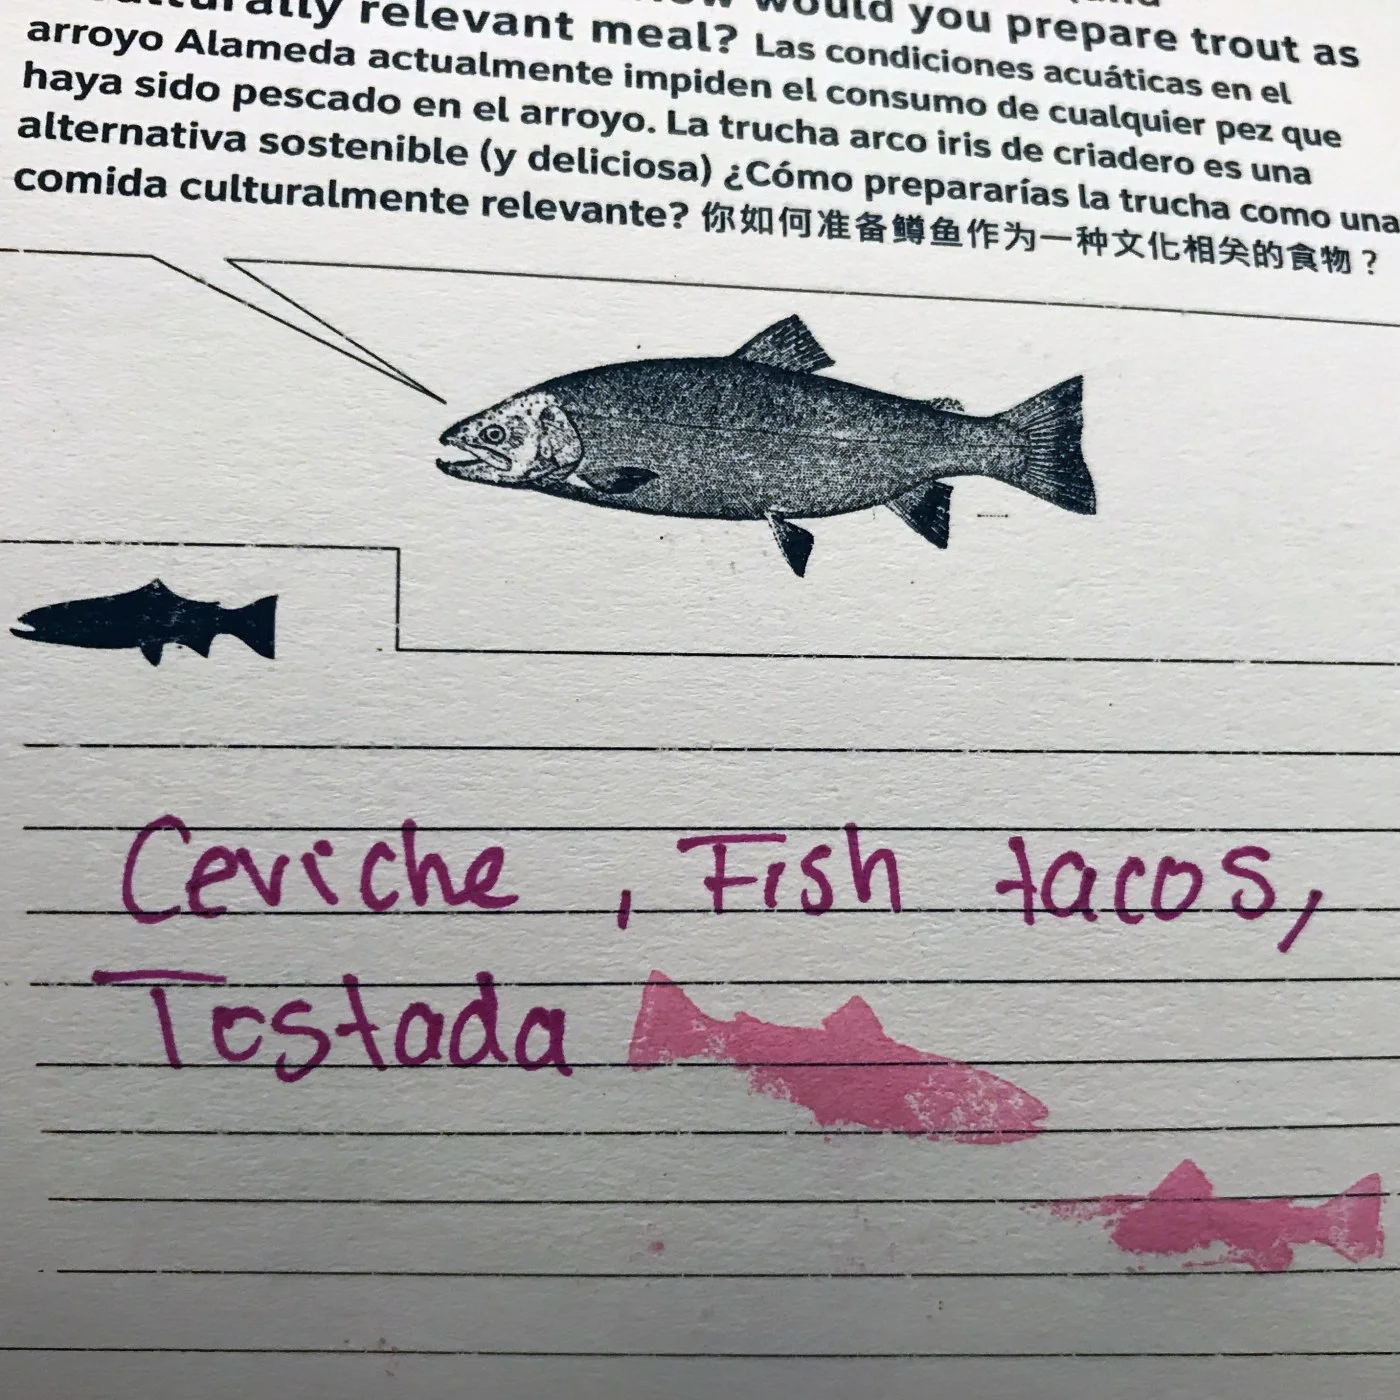 relevant meal? would you prepare trout as
arroyo Alameda actualmente impiden el consumo de cualquier pez que
Las condiciones acuáticas en el
haya sido pescado en el arroyo. La trucha arco iris de criadero es una
alternativa sostenible (y deliciosa) ¿Cómo prepararías la trucha como una
comida culturalmente relevante? 你如何准备鳟鱼作为一种文化相关的食物?
Ceviche, Fish tacos,
Tostada